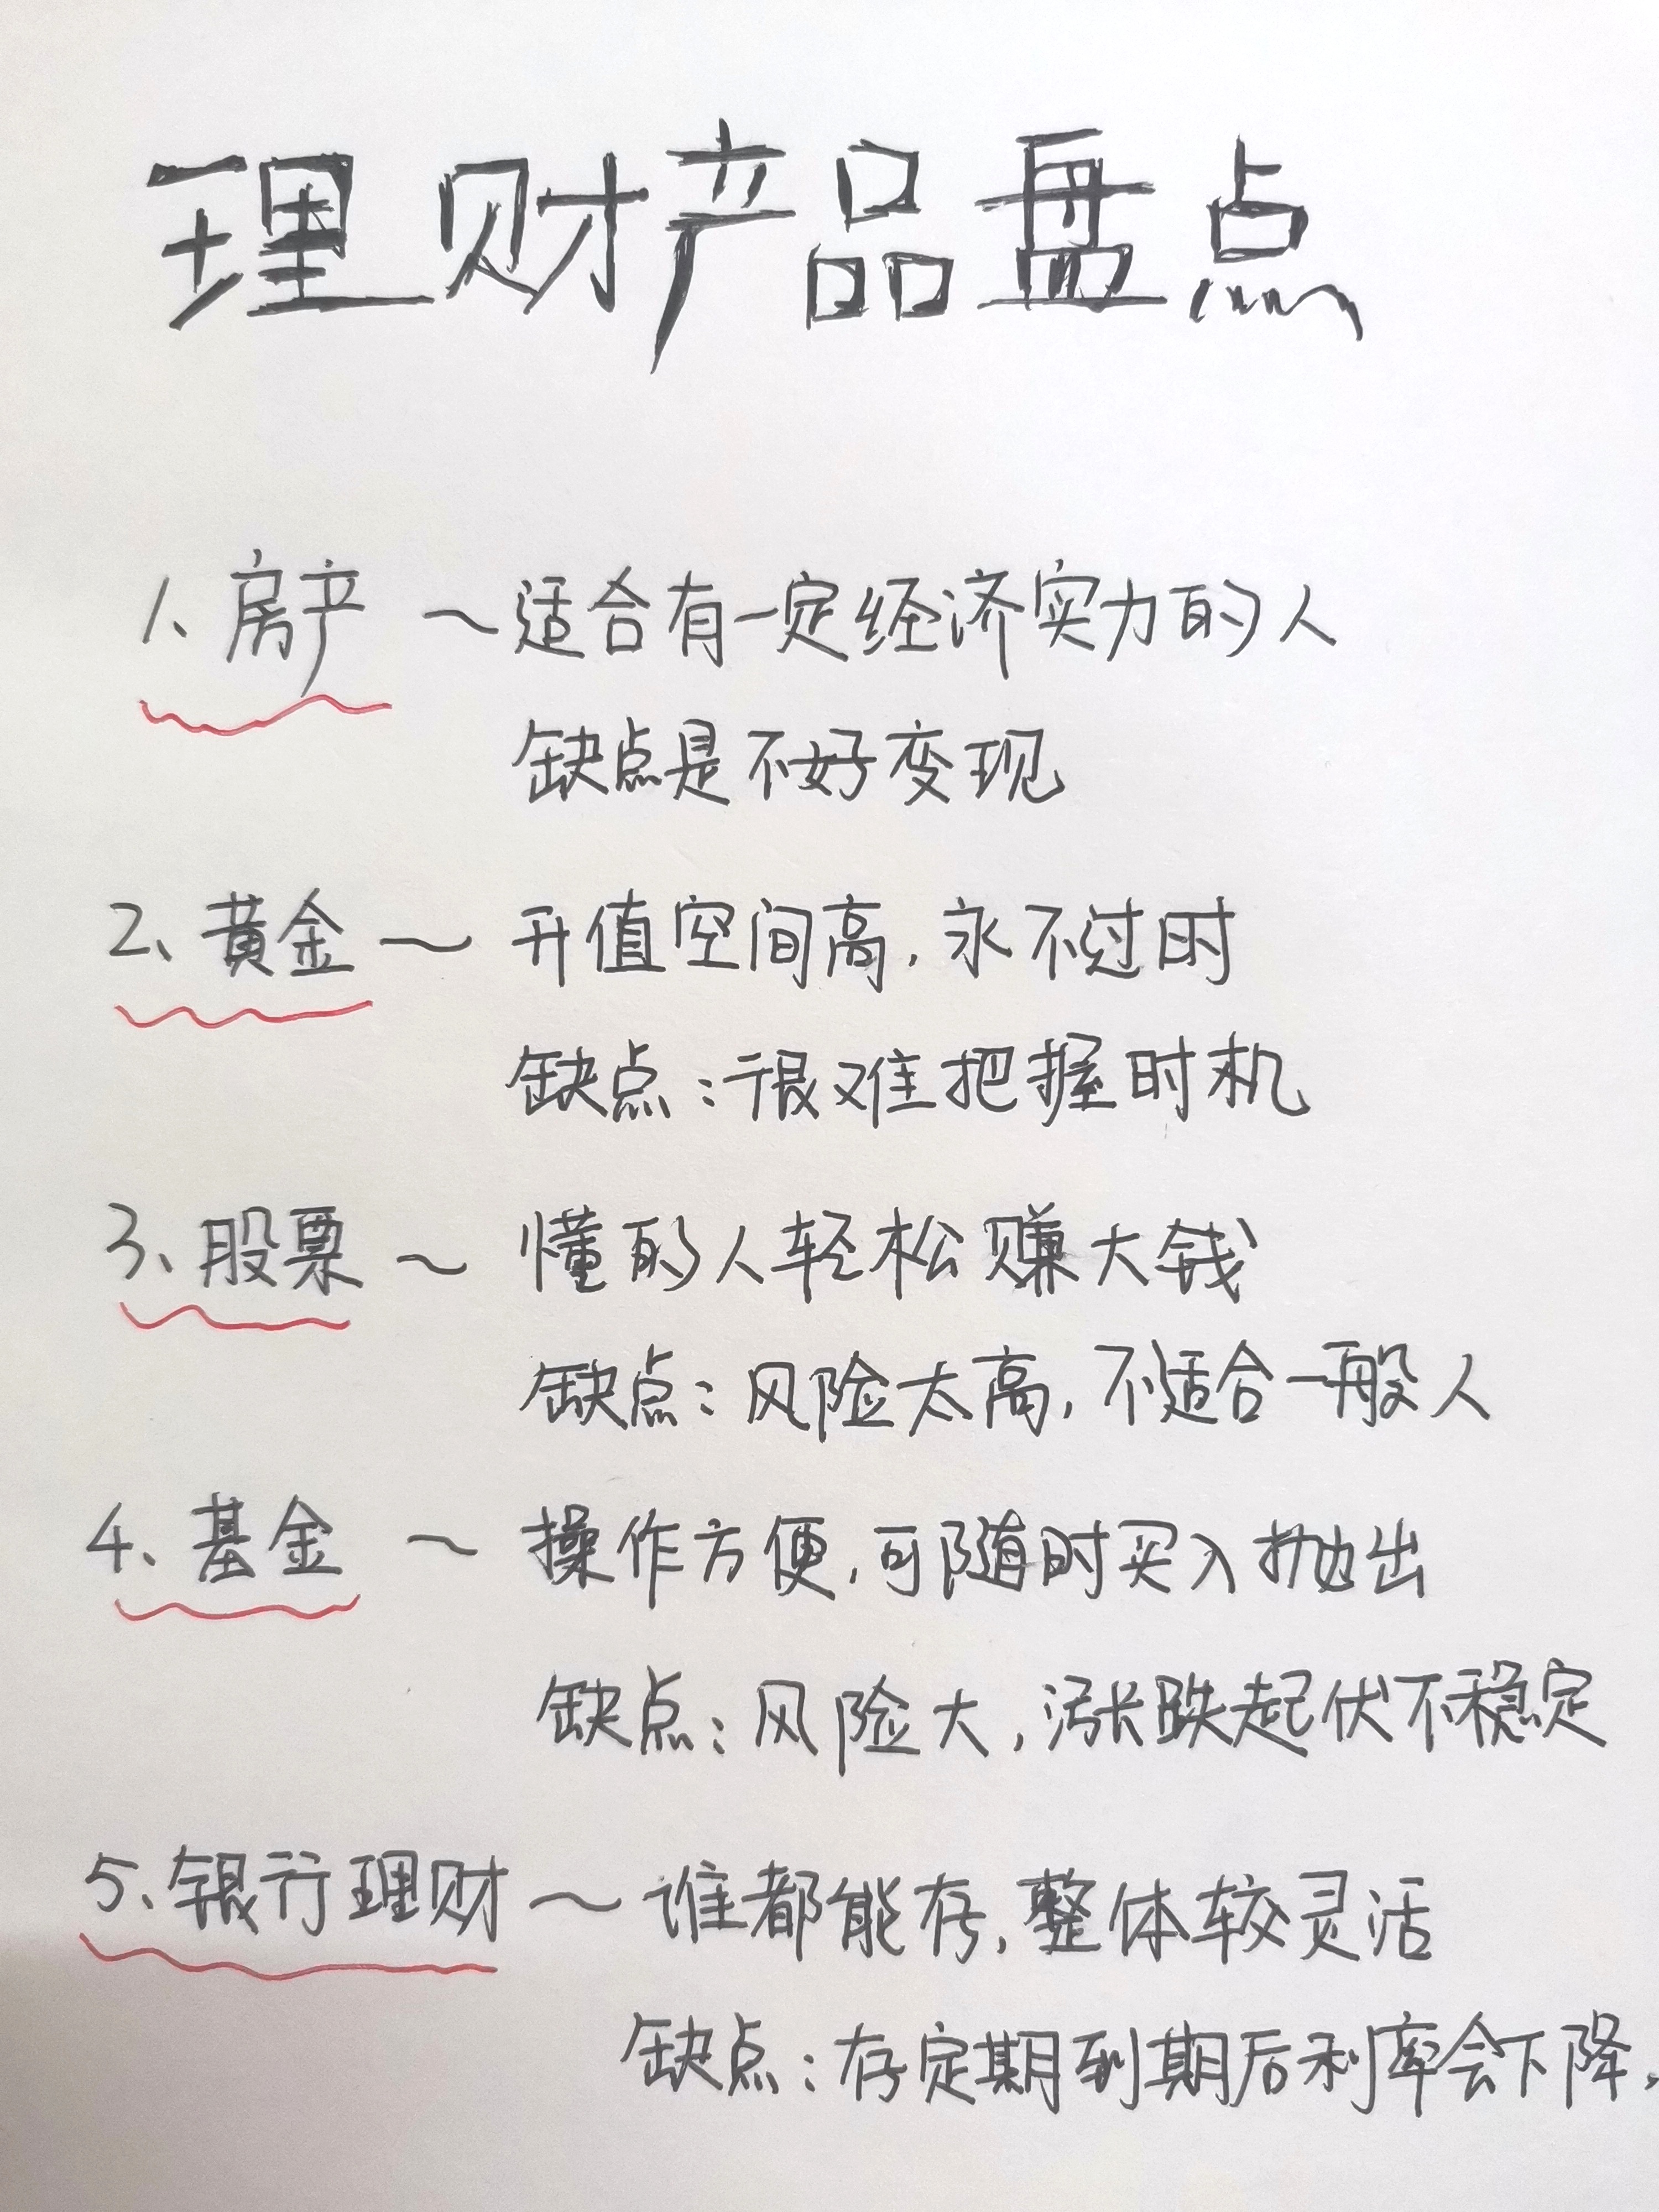 理财产品盘点
1、房产 ~ 适合有一定经济实力的人
缺点是不好变现
2、黄金 ~ 升值空间高,永不过时
缺点:很难把握时机
3、股票 ~ 懂的人轻松赚大钱
缺点:风险太高,不适合一般人
4、基金 ~ 操作方便,可随时买入抛出
缺点:风险大,涨跌起伏不稳定
5、银行理财 ~ 谁都能存,整体较灵活
缺点:存定期到期后利率会下降,